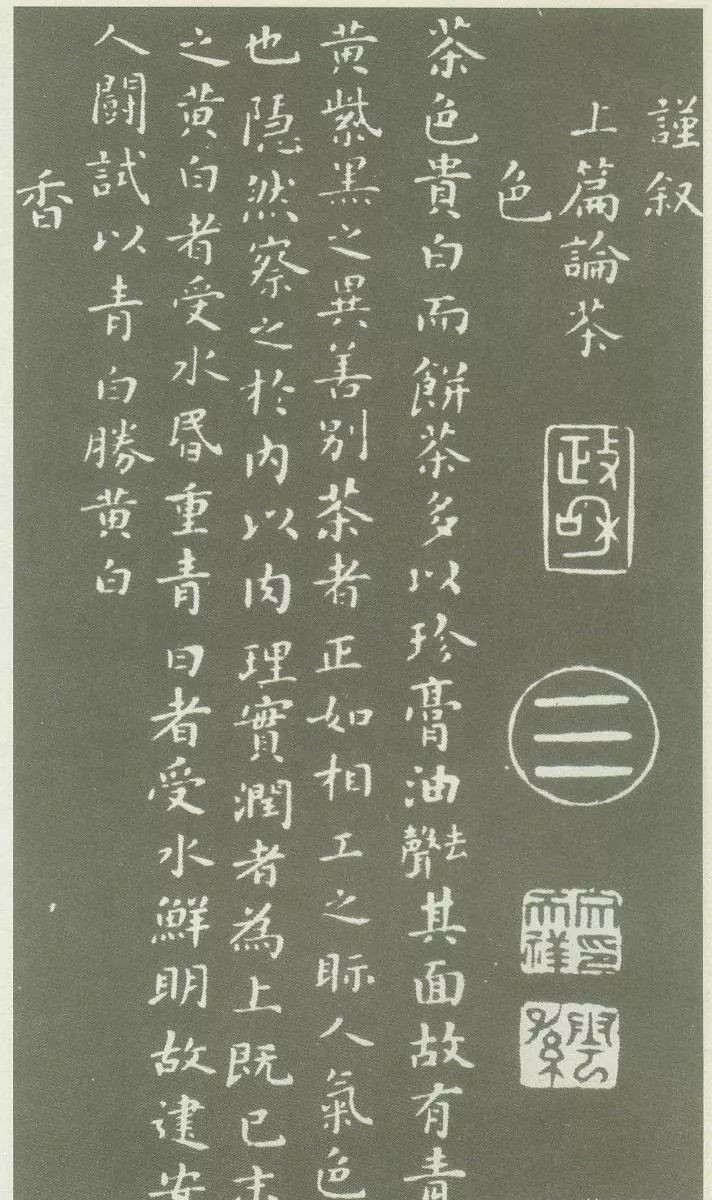 謹叙
上篇論茶
政和
三
色
茶色貴白而餅茶多以珍膏油去聲其面故有青
黃紫黑之異善別茶者正如相工之眎人氣色
也隱然察之於内以肉理實潤者為上既已末
之黃白者受水昬重青白者受水鮮明故建安
人闘試以青白勝黃白
香